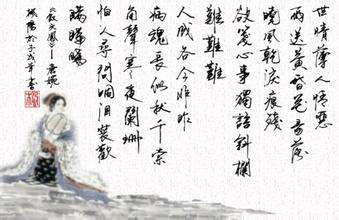 世情薄人情惡
雨送黄昏花易落
曉風乾淚痕殘
欲箋心事獨語斜欄
難難難
人成各今非昨
病魂常似秋千索
角聲寒夜闌珊
怕人尋問咽泪装歡
瞞瞞瞞
《钗头凤》唐琬